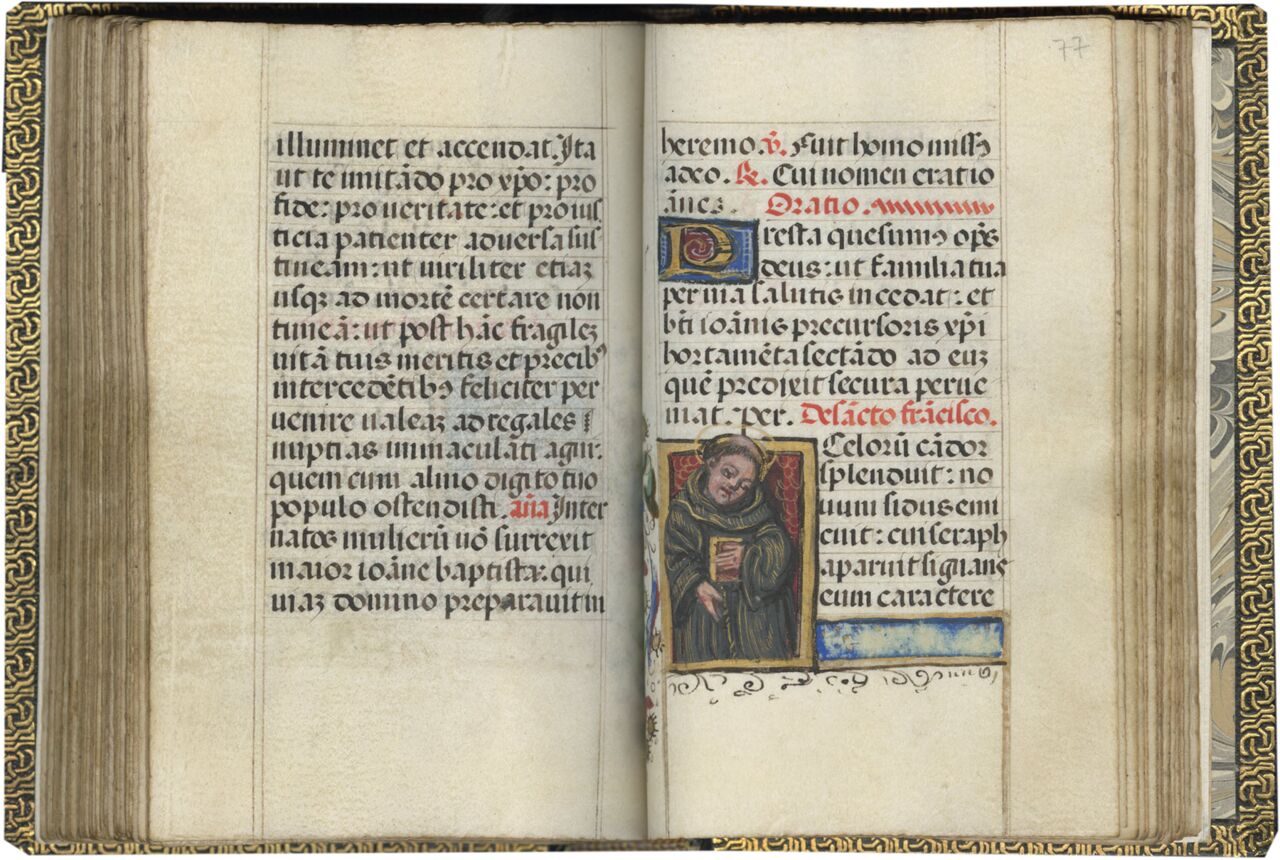 illuminet et accendat. Ita
ut te imitãdo pro xp̃o: pro
fide: pro ueritate: et pro ius
ticia patienter aduersa sus
tineam: ut uiriliter etiaꝫ
usqꝫ ad mortẽ certare non
timeã: ut post hãc fragileꝫ
uitã tuis meritis et precibꝰ
intercedẽtibꝰ feliciter per
uenire ualeaꝫ ad regales
nuptias immaculati agni:
quem cum almo digito tuo
populo ostendisti. añа Inter
natos mulierũ nõ surrexit
maior ioãne baptista: qui
uiaꝫ domino preparauit in
77
heremo. ℣. Fuit homo missꝰ
adeo. ℟. Cui nomen erat io
ãnes. Oratio.
Presta quesumꝰ op̃s
deus: ut familia tua
per uia salutis incedat: et
bt̃i ioãnis precursoris xp̃i
hortamẽta sectãdo ad euꝫ
quẽ predixit secura perue
niat. per. De sãcto frãcisco.
Celorũ cãdor
splenduit: no
uum sidus emi
cuit: cui seraph
aparuit signans
eum caractere